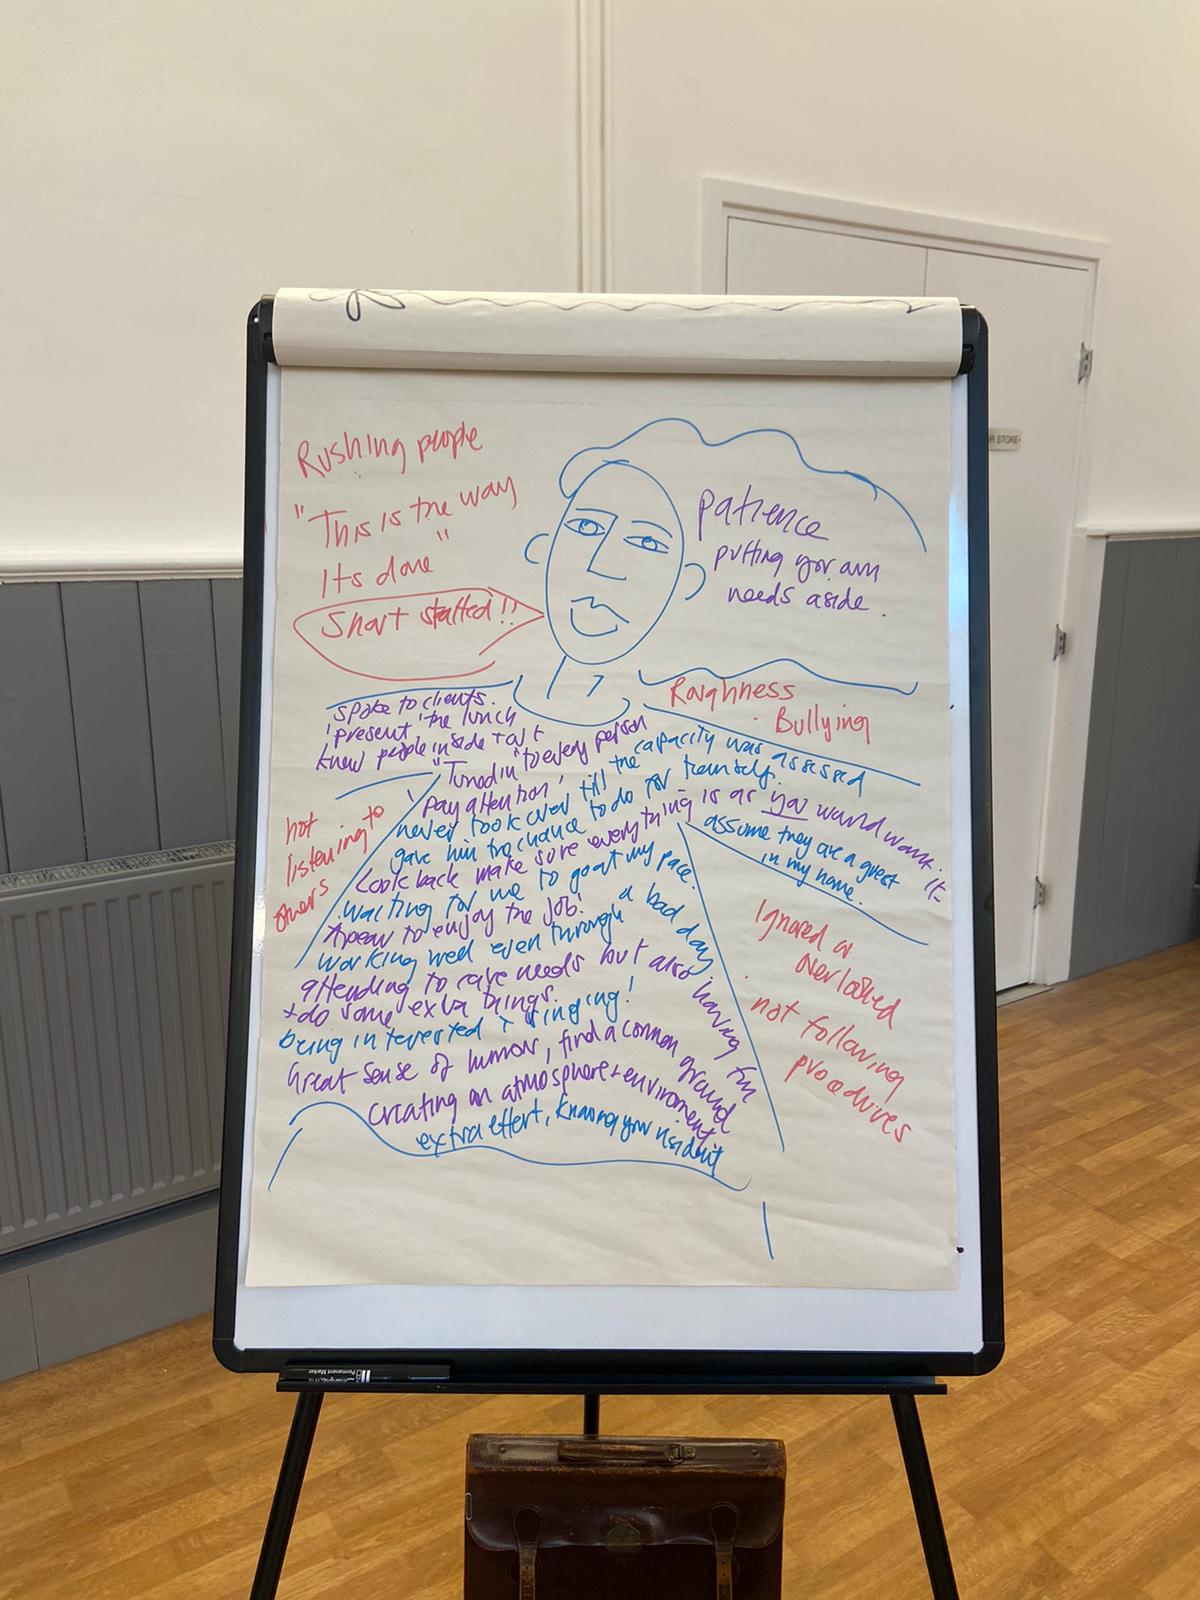 Rushing people
"This is the way
Its done"
Short staffed!!
patience
putting your own
needs aside.
Roughness
Bullying
spoke to clients.
'present' the lunch
knew people inside + out
"Tuned in" to every person
'pay attention'
never took over till the capacity was assessed
gave him the chance to do for themself.
Look back make sure everything is as you would want it-
waiting for me to go at my pace.
assume they are a guest
in my home.
Appear to enjoy the job!
working well even through a bad day.
attending to care needs but also having fun
+ do some extra things.
being interested + singing!
Great sense of humour, find a common ground
creating an atmosphere + enviroment.
extra effort, knowing your resident
not
listening to
others
Ignored or
overlooked
not following
procedures
R STORE
Permanent Marker